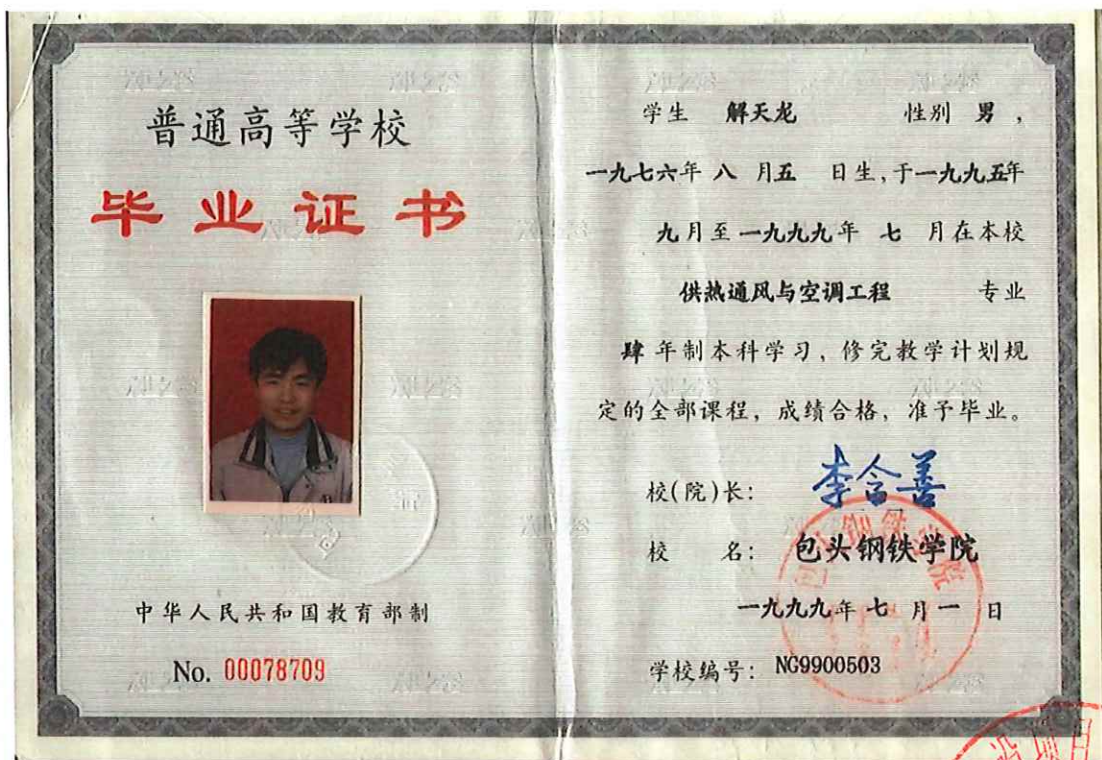 普通高等学校
毕业证书
中华人民共和国教育部制
No. 00078709
学生 解天龙 性别 男,
一九七六年 八 月五 日生,于一九九五年
九月至一九九九年 七 月在本校
供热通风与空调工程 专业
肆 年制本科学习,修完教学计划规
定的全部课程,成绩合格,准予毕业。
校(院)长: 李含善
校 名: 包头钢铁学院
一九九九年 七 月 一 日
学校编号: NG9900503
包头钢铁学院